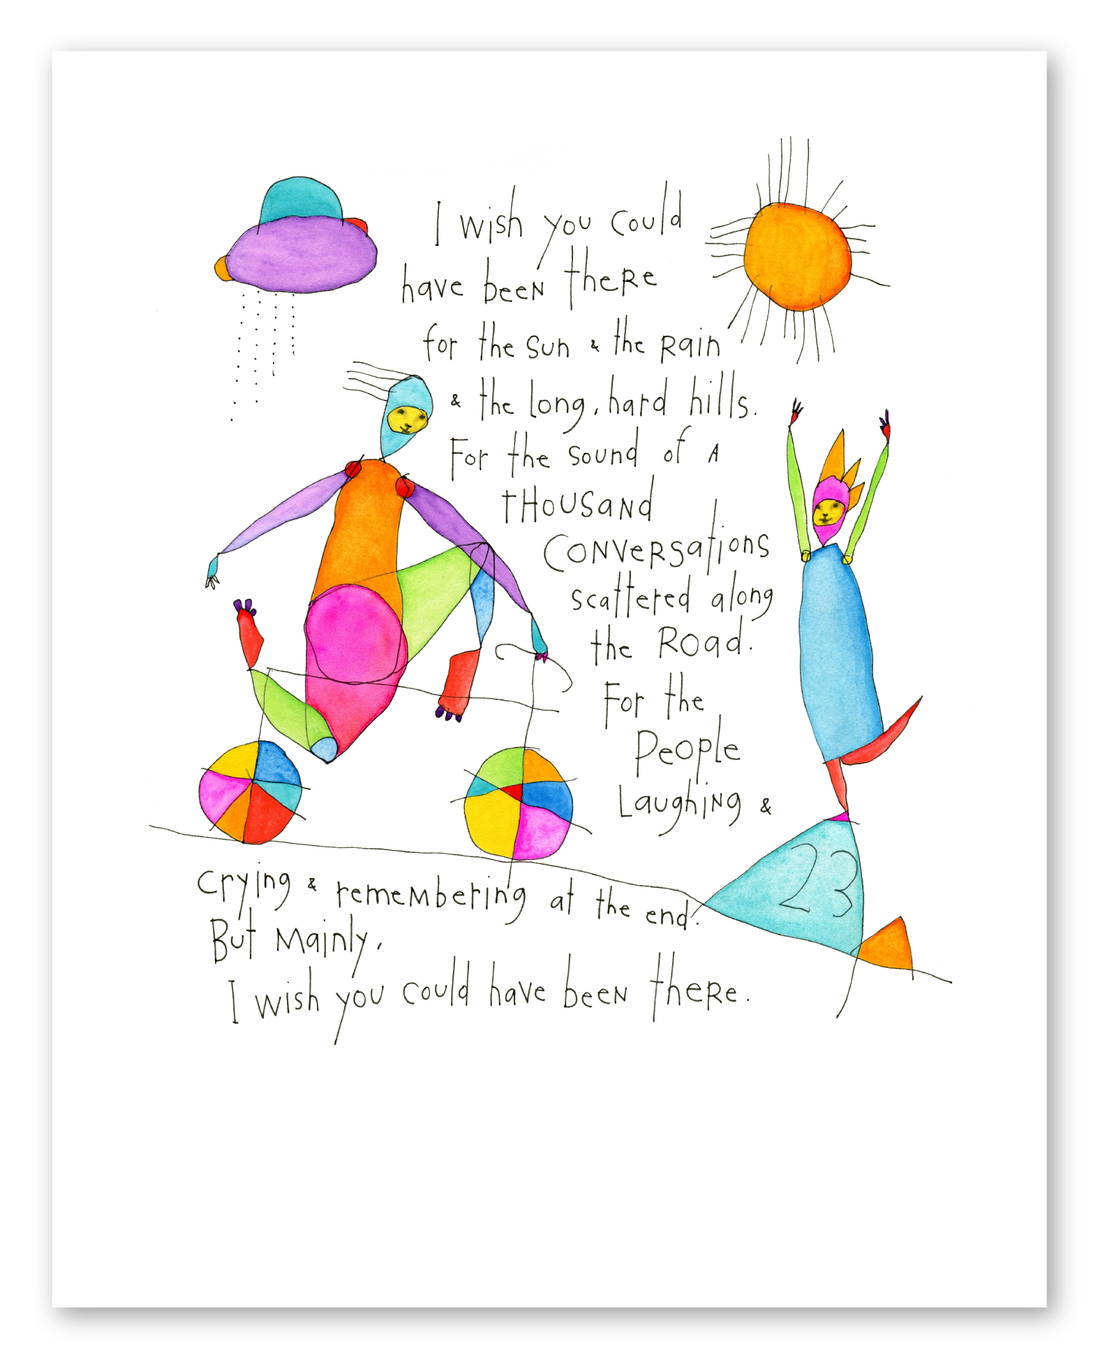 I wish you could
have been there
for the sun & the rain
& the long, hard hills.
For the sound of a
thousand
conversations
scattered along
the road.
For the
people
laughing &
23
crying & remembering at the end.
But mainly,
I wish you could have been there.